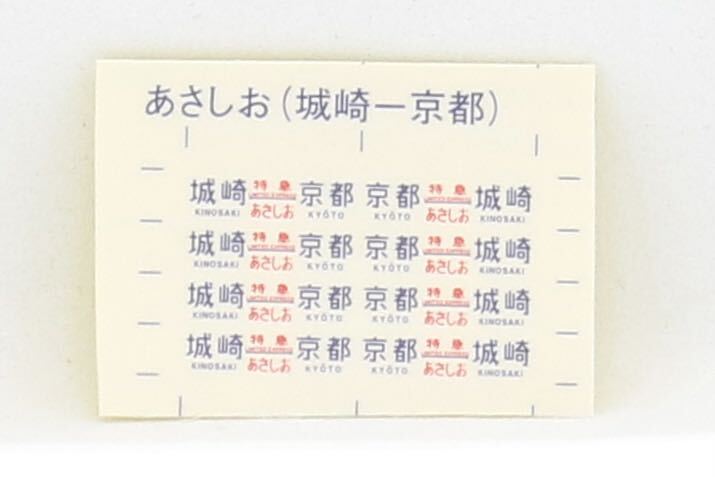 あさしお（城崎ー京都）
城崎 特急 京都 京都 特急 城崎
LIMITED EXPRESS LIMITED EXPRESS
KINOSAKI あさしお KYŌTO KYŌTO あさしお KINOSAKI
城崎 特急 京都 京都 特急 城崎
LIMITED EXPRESS LIMITED EXPRESS
KINOSAKI あさしお KYŌTO KYŌTO あさしお KINOSAKI
城崎 特急 京都 京都 特急 城崎
LIMITED EXPRESS LIMITED EXPRESS
KINOSAKI あさしお KYŌTO KYŌTO あさしお KINOSAKI
城崎 特急 京都 京都 特急 城崎
LIMITED EXPRESS LIMITED EXPRESS
KINOSAKI あさしお KYŌTO KYŌTO あさしお KINOSAKI